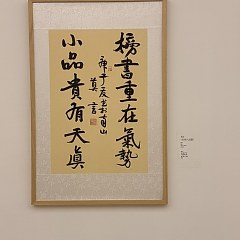 榜書重在氣勢
小品貴有天真
庚子夏書於青山
莫言